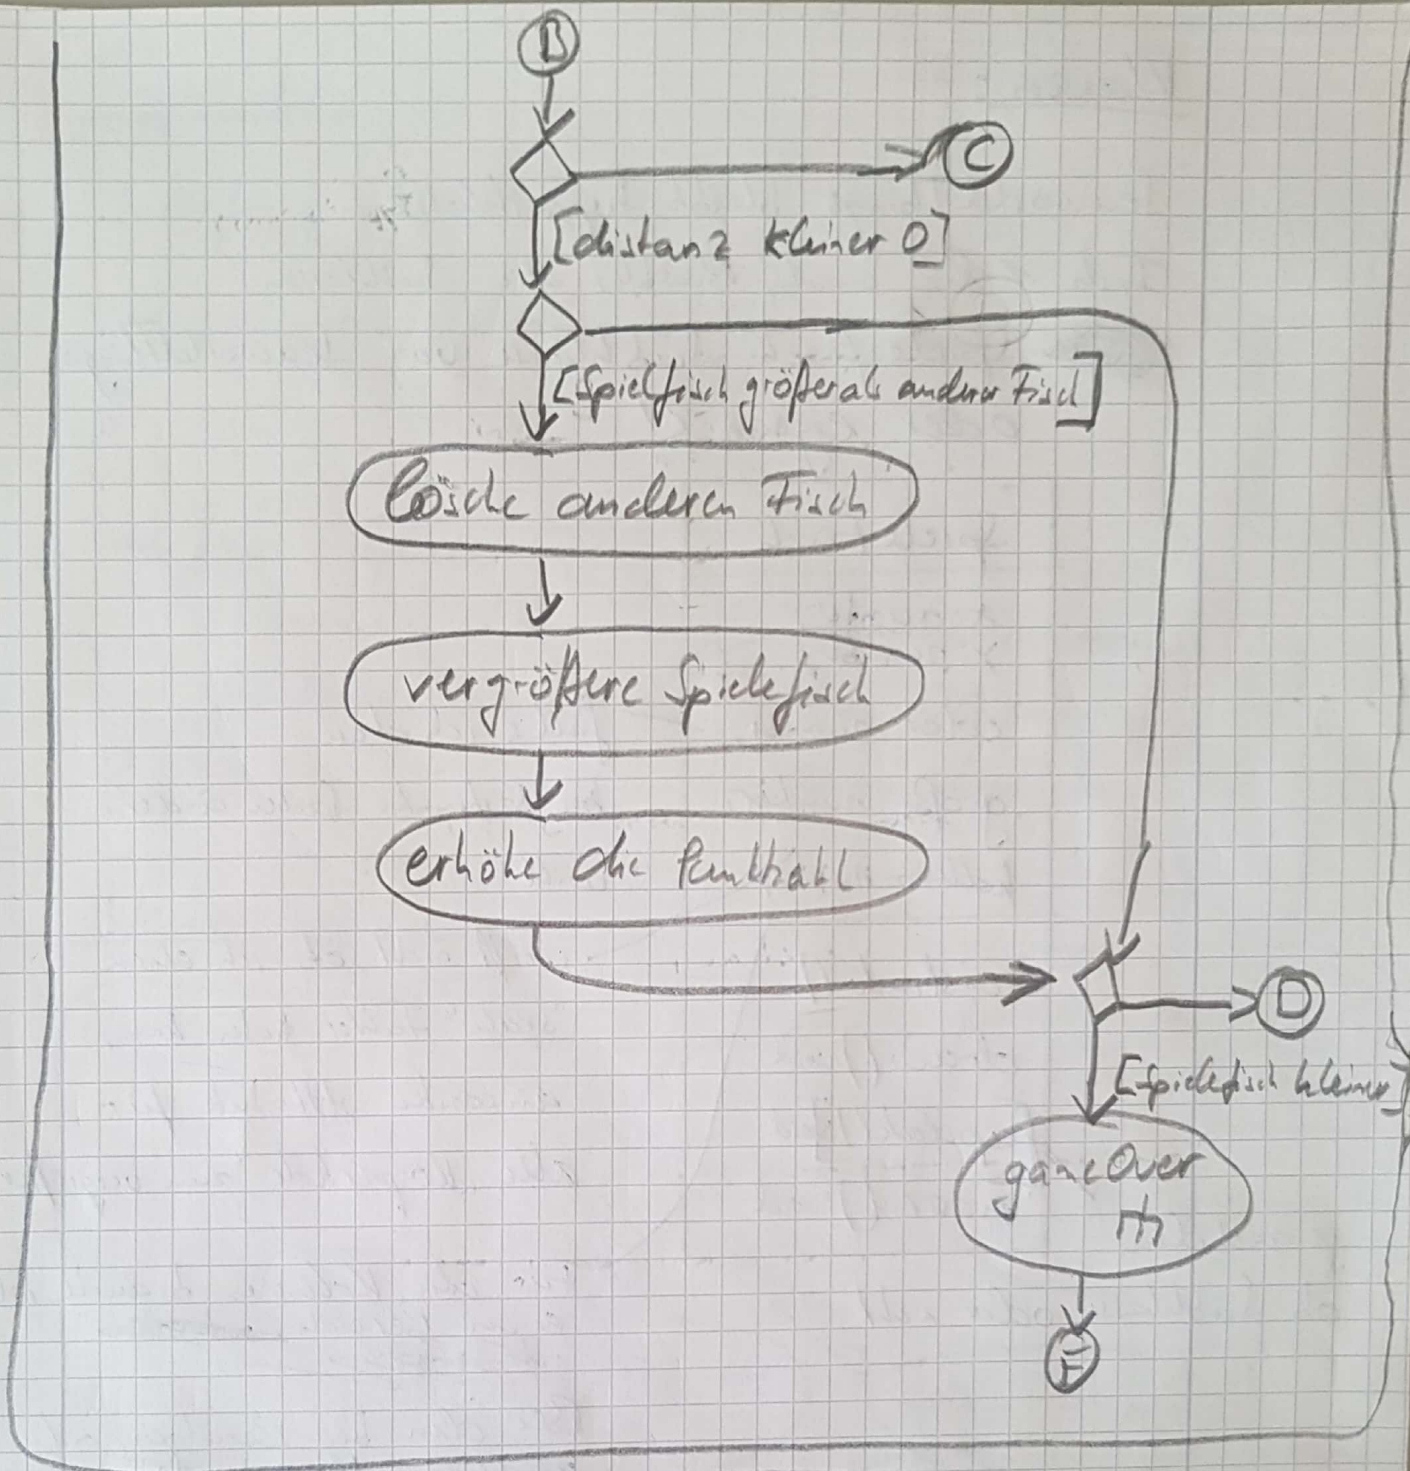 B
C
[distanz kleiner 0]
[Spielfisch größer als anderer Fisch]
lösche anderen Fisch
vergrößere Spielefisch
erhöhe die Punktzahl
D
[Spielefisch kleiner]
gameOver
E